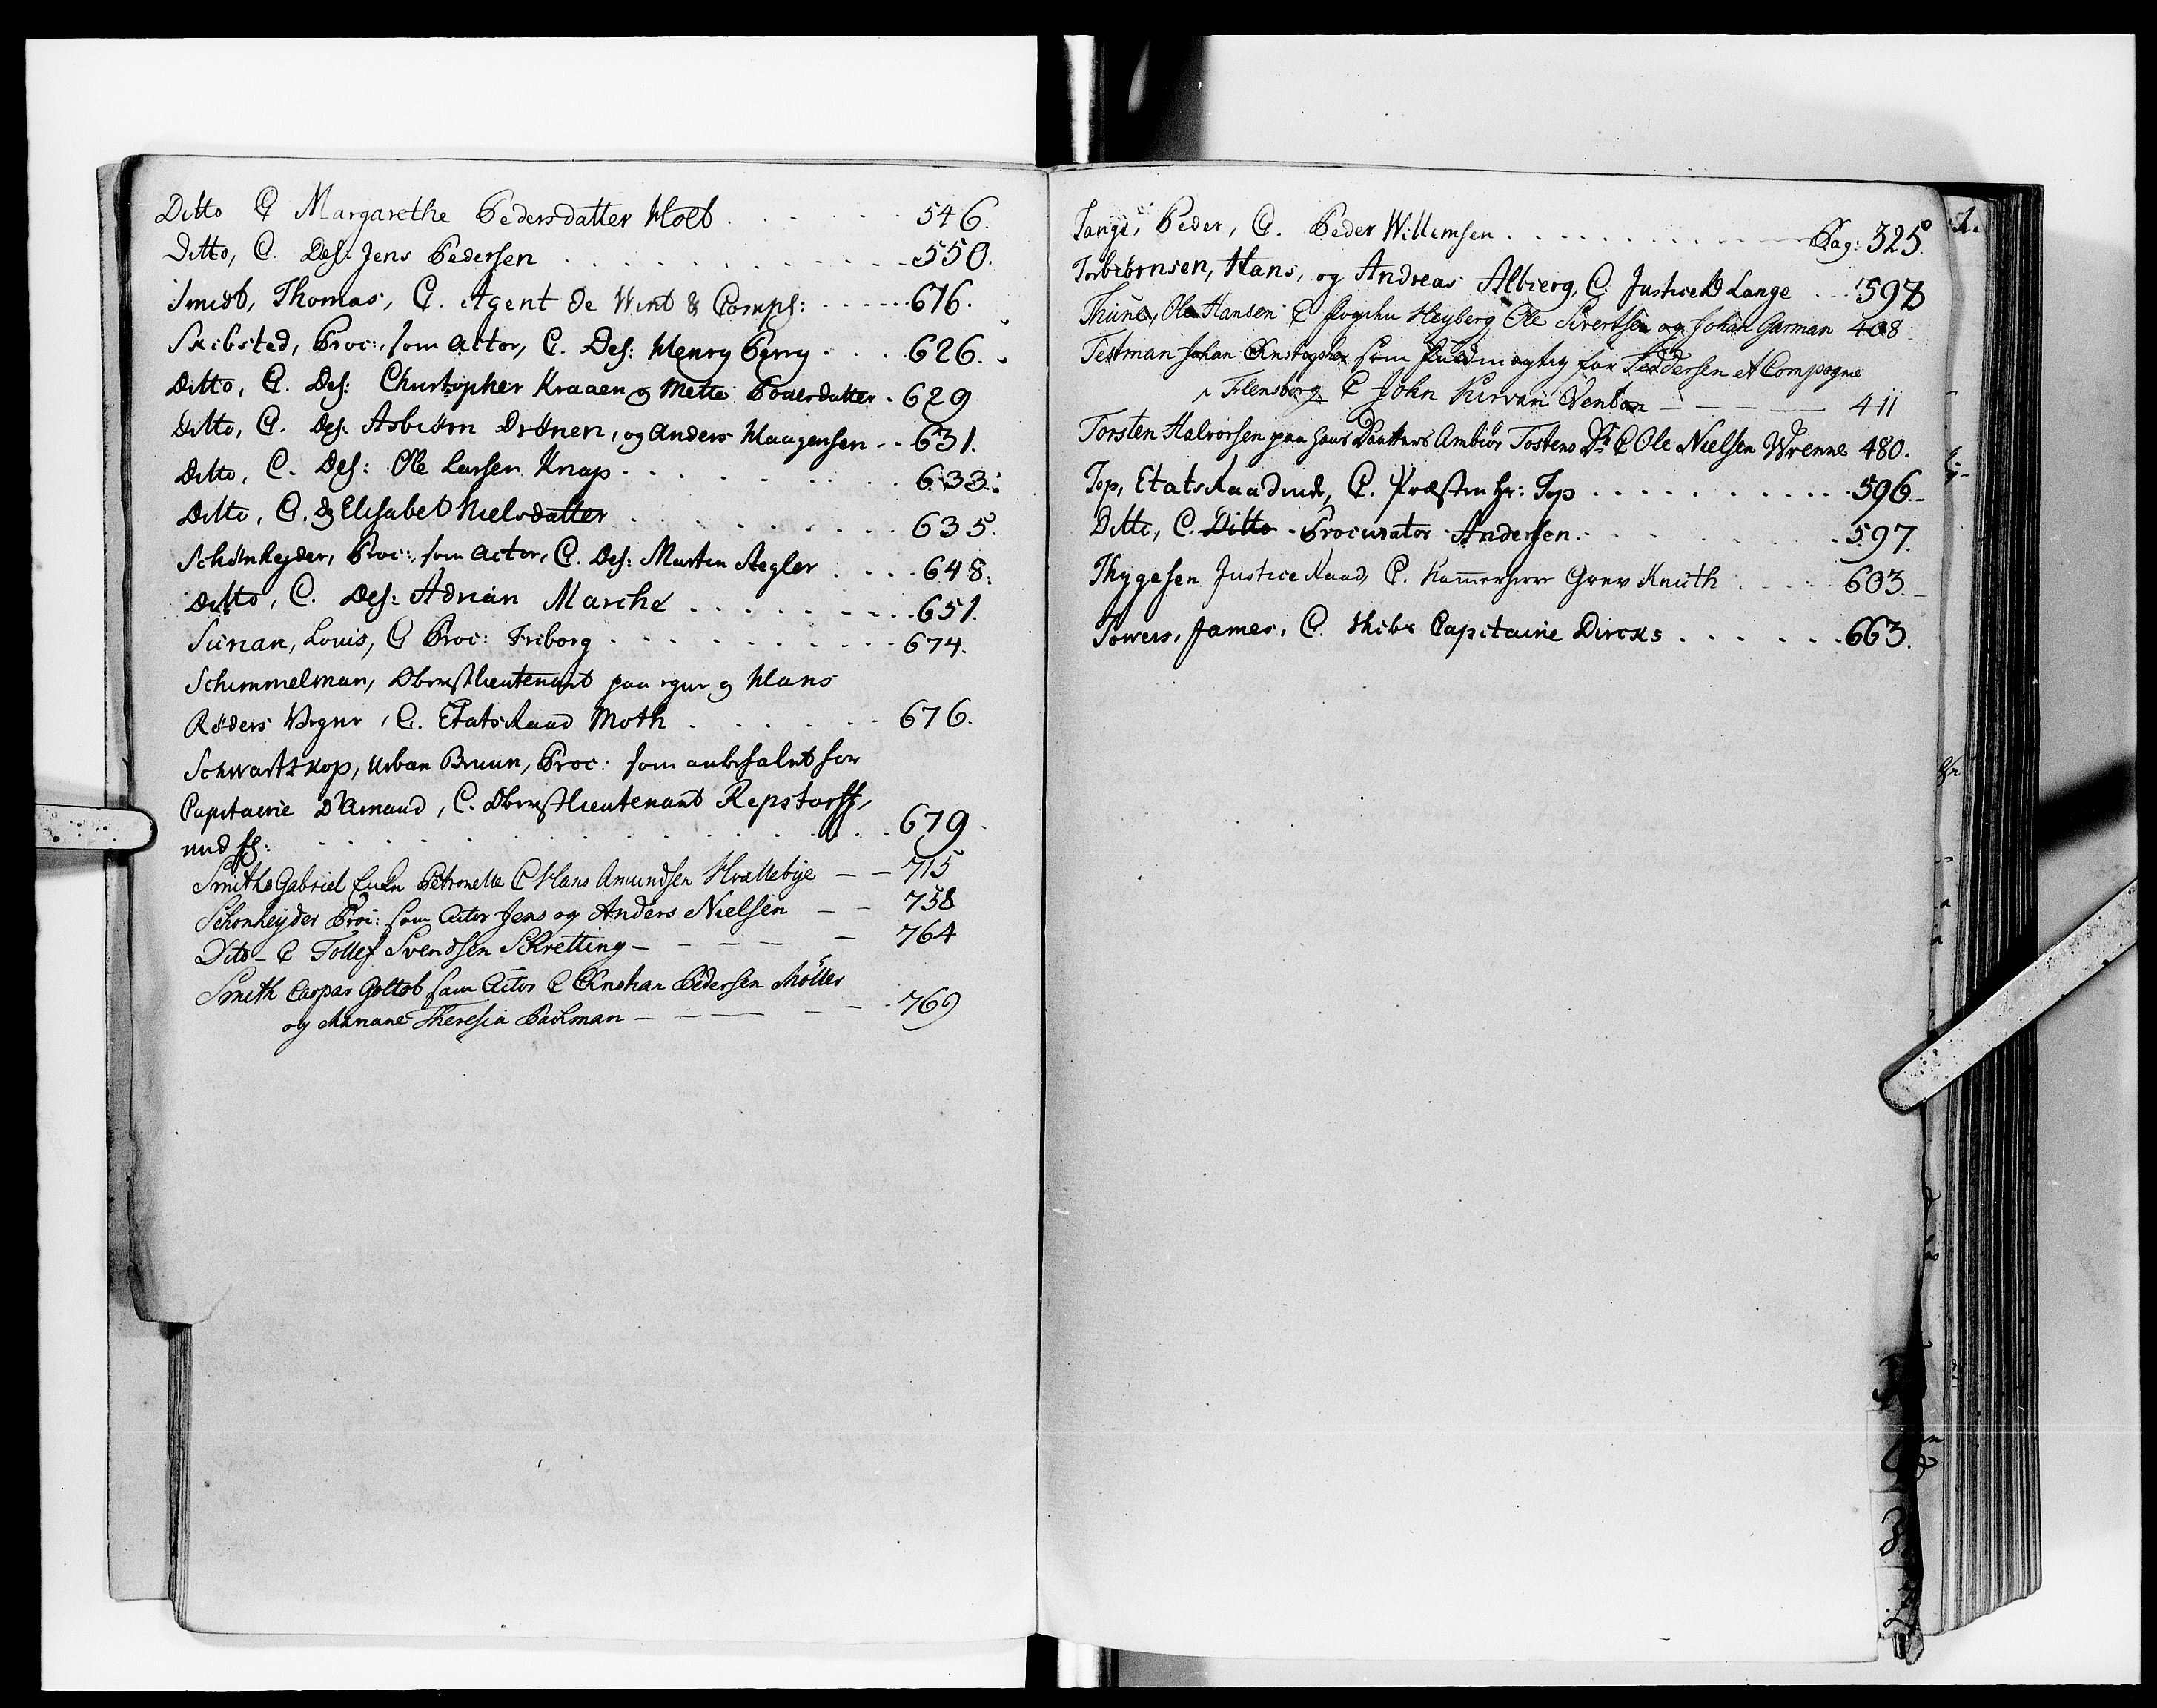 Ditto C Margarethe Pedersdatter Holt . . . . . 546.
Ditto, C. Def: Jens Pedersen . . . . . . . 550.
Smidt, Thomas, C. Agent de Wint & Comp: . . . . . 616.
Skibsted, Proc:, som Actor, C. Def: Henry Perry . . . . 626.
Ditto, C. Def: Christopher Kraaen og Mette Poversdatter . 629
Ditto, C. Def: Asbiørn Drønen, og Anders Haagensen . . 631.
Ditto, C. Def: Ole Larsen Knap . . . . . 633.
Ditto, C. Elisabet Nielsdatter . . . . . 635.
Schønheyder, Proc:, som Actor, C. Def: Martin Aegler . . . . 648.
Ditto, C. Def: Adrian Marché . . . . . . . 651.
Sunan, Louis, C Proc: Friborg . . . . . . . 674.
Schimmelman, Obrestlieutenant paa egne og Hans
Røders Vegne, C. Etats Raad Moth . . . . . 676.
Schwartzkop, Urban Bruun, Proc: som anbefalet for
Capitaine D'Arnaud, C. Obrestlieutenant Repstorff,
. . . . . . . . 679.
Smiths Gabriel Petronelle C Hans Amundsen Hvallebye — — 715
Schonheyder Proc: som Actor Jens og Anders Nielsen — — 758
Dito — C Tollef Svendsen Skretting — — — — — 764
Smith Caspar Gottlob som Actor C Christian Pedersen Möller
og Mariane Theresia Bachman — — — — — 769
T.
Tange, Peder, C. Peder Willemsen . . . . . . . Pag: 325.
Torbiörnsen, Hans, og Andreas Albierg, C. Justice R Lange . . . 597
Thüne, Ole Hansen C Heyberg Ole Sivertsen og Johan Garman 408
Testman Johan Christopher som fuldmægtig for Feddersen et Compagne
i Flensborg C John Kirvan Venton — — — — 411
Torsten Halvorsen paa hans Daatters Ambiør Tostens Dr C Ole Nielsen Wrenne 480.
Top, Etats Raadinde, C. Præsten Hr: Top . . . . . . . . . . 596.
Ditto, C. Ditto Procurator Andersen . . . . . . 597.
Thygesen Justice Raad, C. Kammerherre Greve Knuth . . . . 603.
Towers, James, C. Skibs Capitaine Dircks . . . . . . 663.